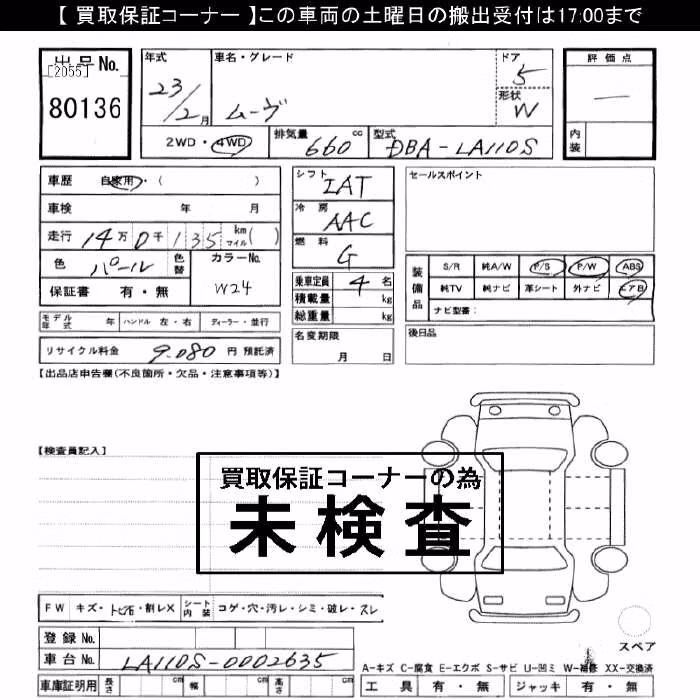 【 買取保証コーナー 】この車両の土曜日の搬出受付は17:00まで
出品No.
[2055]
80136
年式 車名・グレード ドア 評価点
23/2月 ムーヴ 5
形状 W
2WD・4WD 排気量 660 cc 型式 DBA-LA110S 内装
車歴 自家用・( )
車検 年 月
走行 14万0千135 km マイル( )
色 パール 色替 カラーNo. W24
保証書 有・無
モデル年式 年 ハンドル 左・右 ディーラー・並行
リサイクル料金 9.080 円 預託済
シフト IAT
冷房 AAC
燃料 G
乗車定員 4 名
積載量 kg
総重量 kg
名変期限
月 日
セールスポイント
装備品 S/R 純A/W P/S P/W ABS
純TV 純ナビ 革シート 外ナビ エアB
ナビ型番:
後日品
【出品店申告欄(不良箇所・欠品・注意事項等)】
【検査員記入】
買取保証コーナーの為
未検査
FW キズ・トビ石・割レX シート内装 コゲ・穴・汚レ・シミ・破レ・スレ
登録No.
車台No. LA110S-0002635
車庫証明用 長さ cm 幅 cm 高さ cm
スペア
A-キズ C-腐食 E-エクボ S-サビ U-凹ミ W-補修 XX-交換済
工具 有・無 ジャッキ 有・無